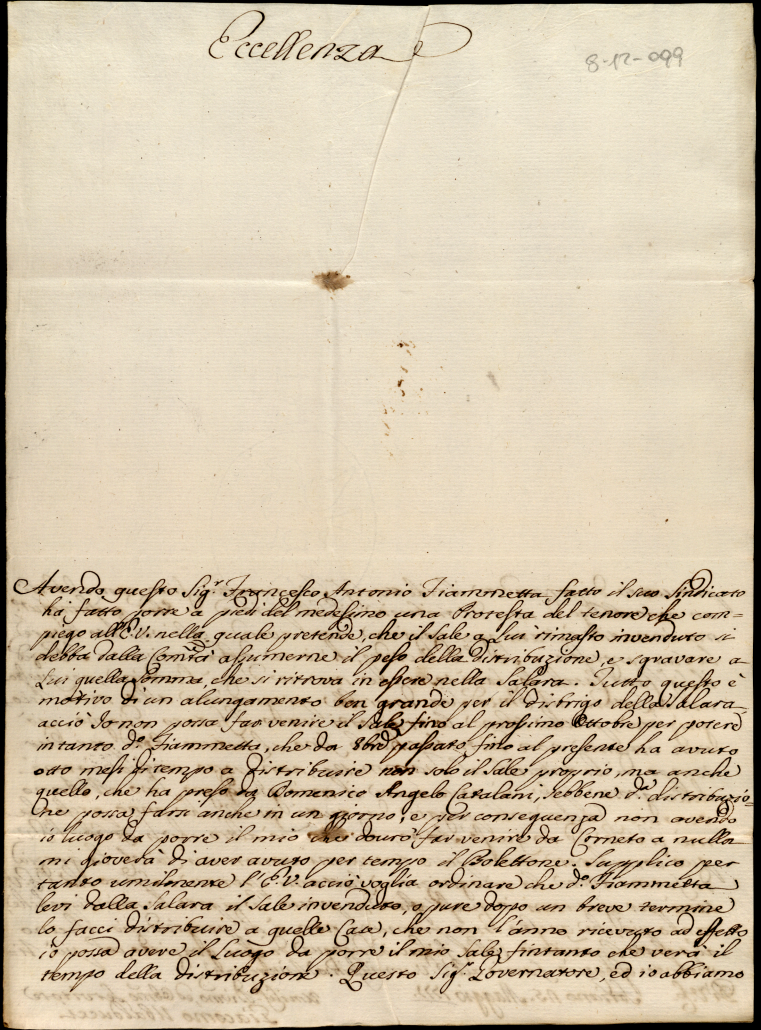 Eccellenza
8-12-099
Avendo questo Sig.r Francesco Antonio Fiammetta fatto il suo Sindicato
hà fatto porre a piedi del medesimo una Protesta del tenore che com=
piego all'E.V. nella quale pretende, che il Sale a Lui rimasto invenduto si
debba dalla Com̃tà assumerne il peso della distribuzione, e sgravare a
Lui quella somma, che si ritrova in essere nella Salara. Tutto questo è
motivo di un alungamento ben grande per il distrigo della Salara
acciò Io non possa far venire il Sale fino al prossimo Ottobre per potere
intanto d.o Fiammetta, che da 8bre passato fino al presente ha avuto
otto mesi di tempo a distribuire non solo il Sale proprio, ma anche
quello, che ha preso da Domenico Angelo Catalani, sebbene d.a distribuzio=
ne possa farsi anche in un giorno, e per conseguenza non avendo
io luogo da porre il mio che dourò far venire da Corneto a nulla
mi gioverà di aver avuto per tempo il Bolettone. Supplico per
tanto umilmente l'E.V. acciò voglia ordinare che d.o Fiammetta
levi dalla Salara il Sale invenduto, o pure dopo un breve termine
lo facci distribuire a quelle Case, che non l'anno ricevuto ad effetto
io possa avere il Luogo da porre il mio Sale fintanto che verà il
tempo della distribuzione. Questo Sig.r Governatore, ed io abbiamo